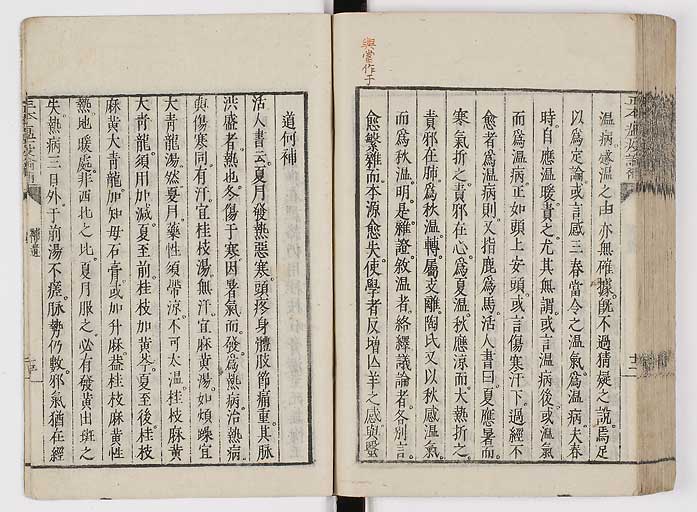 與當作于
溫病感溫之由亦無確據旣不過猜疑之說焉足
以爲定論或言感三春當令之溫氣爲溫病夫春
時自應溫暖責之尤其無謂或言溫病後或溫氣
而爲溫病正如頭上安頭或言傷寒汗下過經不
愈者爲溫病則又指鹿爲馬活人書曰夏應暑而
寒氣折之責邪在心爲夏溫秋應涼而大熱折之
責邪在肺爲秋溫轉屬支離陶氏又以秋感溫氣
而爲秋溫明是雜證敘溫者絡繹議論者各別言
愈繁雜而本源愈失使學者反增亡羊之感與醫
十二
道何補
活人書云夏月發熱惡寒頭疼身體肢節痛重其脉
洪盛者熱也冬傷于寒因暑氣而發爲熱病治熱病
與傷寒同有汗宜桂枝湯無汗宜麻黄湯如煩躁宜
大青龍湯然夏月藥性須帶涼不可太温桂枝麻黄
大青龍須用加減夏至前桂枝加黄芩夏至後桂枝
麻黄大青龍加知母石膏或加升麻蓋桂枝麻黄性
熱地暖處非西北之比夏月服之必有發黄出斑之
失熱病三日外于前湯不瘥脉勢仍數邪氣猶在經
補遺